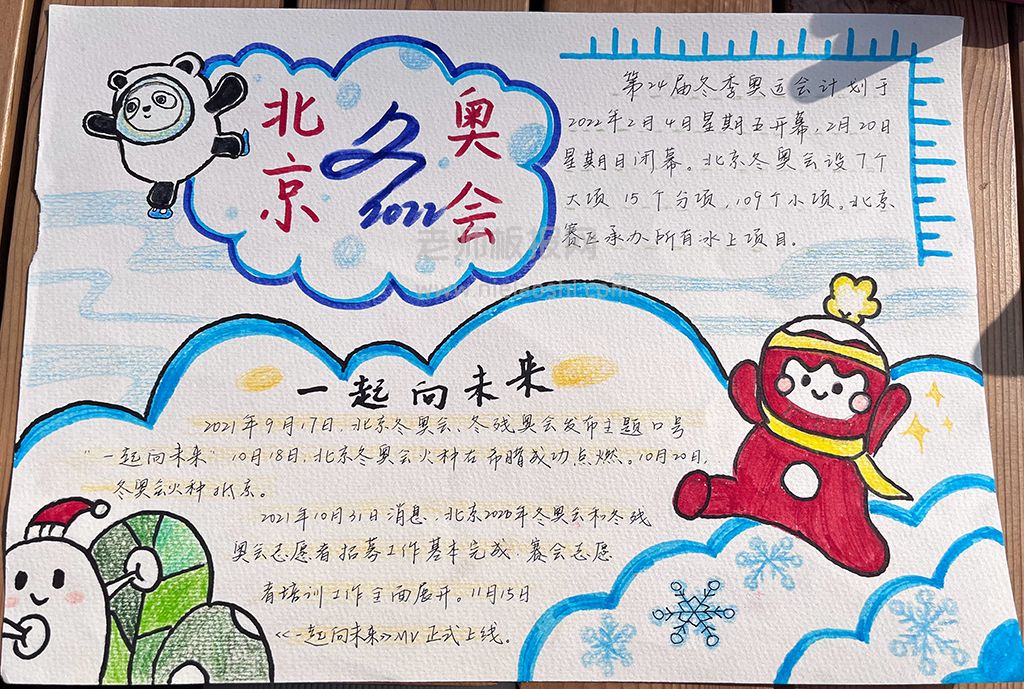 北京冬奥会
2022
第24届冬季奥运会计划于
2022年2月4日星期五开幕,2月20日
星期日闭幕。北京冬奥会设7个
大项 15个分项,109个小项。北京
赛区承办所有冰上项目.
一起向未来
2021年9月17日,北京冬奥会、冬残奥会发布主题口号
"一起向未来"10月18日,北京冬奥会火种在希腊成功点燃。10月20日,
冬奥会火种 北京。
2021年10月31日消息,北京2020年冬奥会和冬残
奥会志愿者招募工作基本完成,赛会志愿
者培训工作全面展开。11月15日
《一起向未来》MV正式上线.